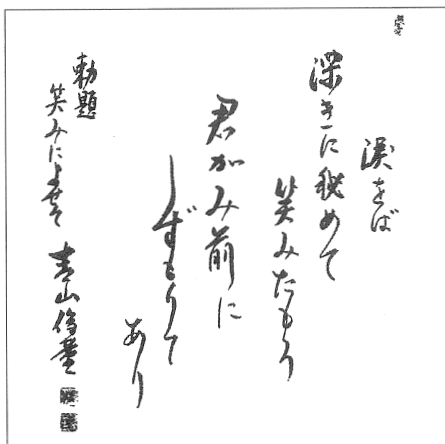 涙をば
深きに秘めて
笑みたもう
君がみ前に
しずもりて
あり
勅題
笑みによせて 青山俊董